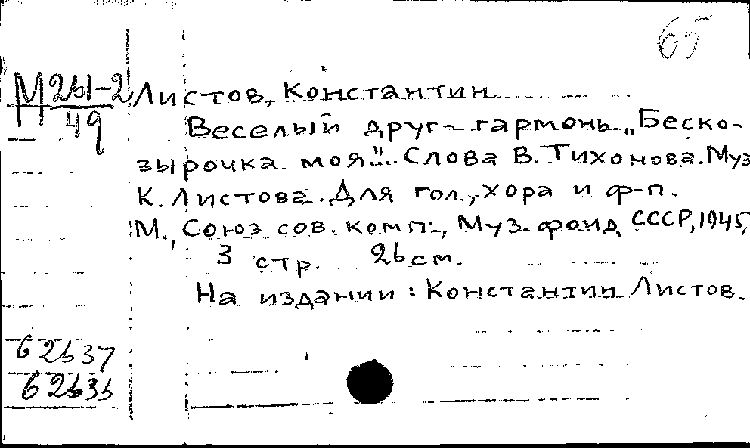 65
М 261-2
49
Листов, Константин
Веселый друг-гармонь. „Беско-
зырочка моя". Слова В. Тихонова. Муз
К. Листова. Для гол., хора и ф-п.
М., Союз сов. комп., Муз. фонд СССР, 1945,
3 стр. 26 см.
На издании: Константин Листов.
62637
62636